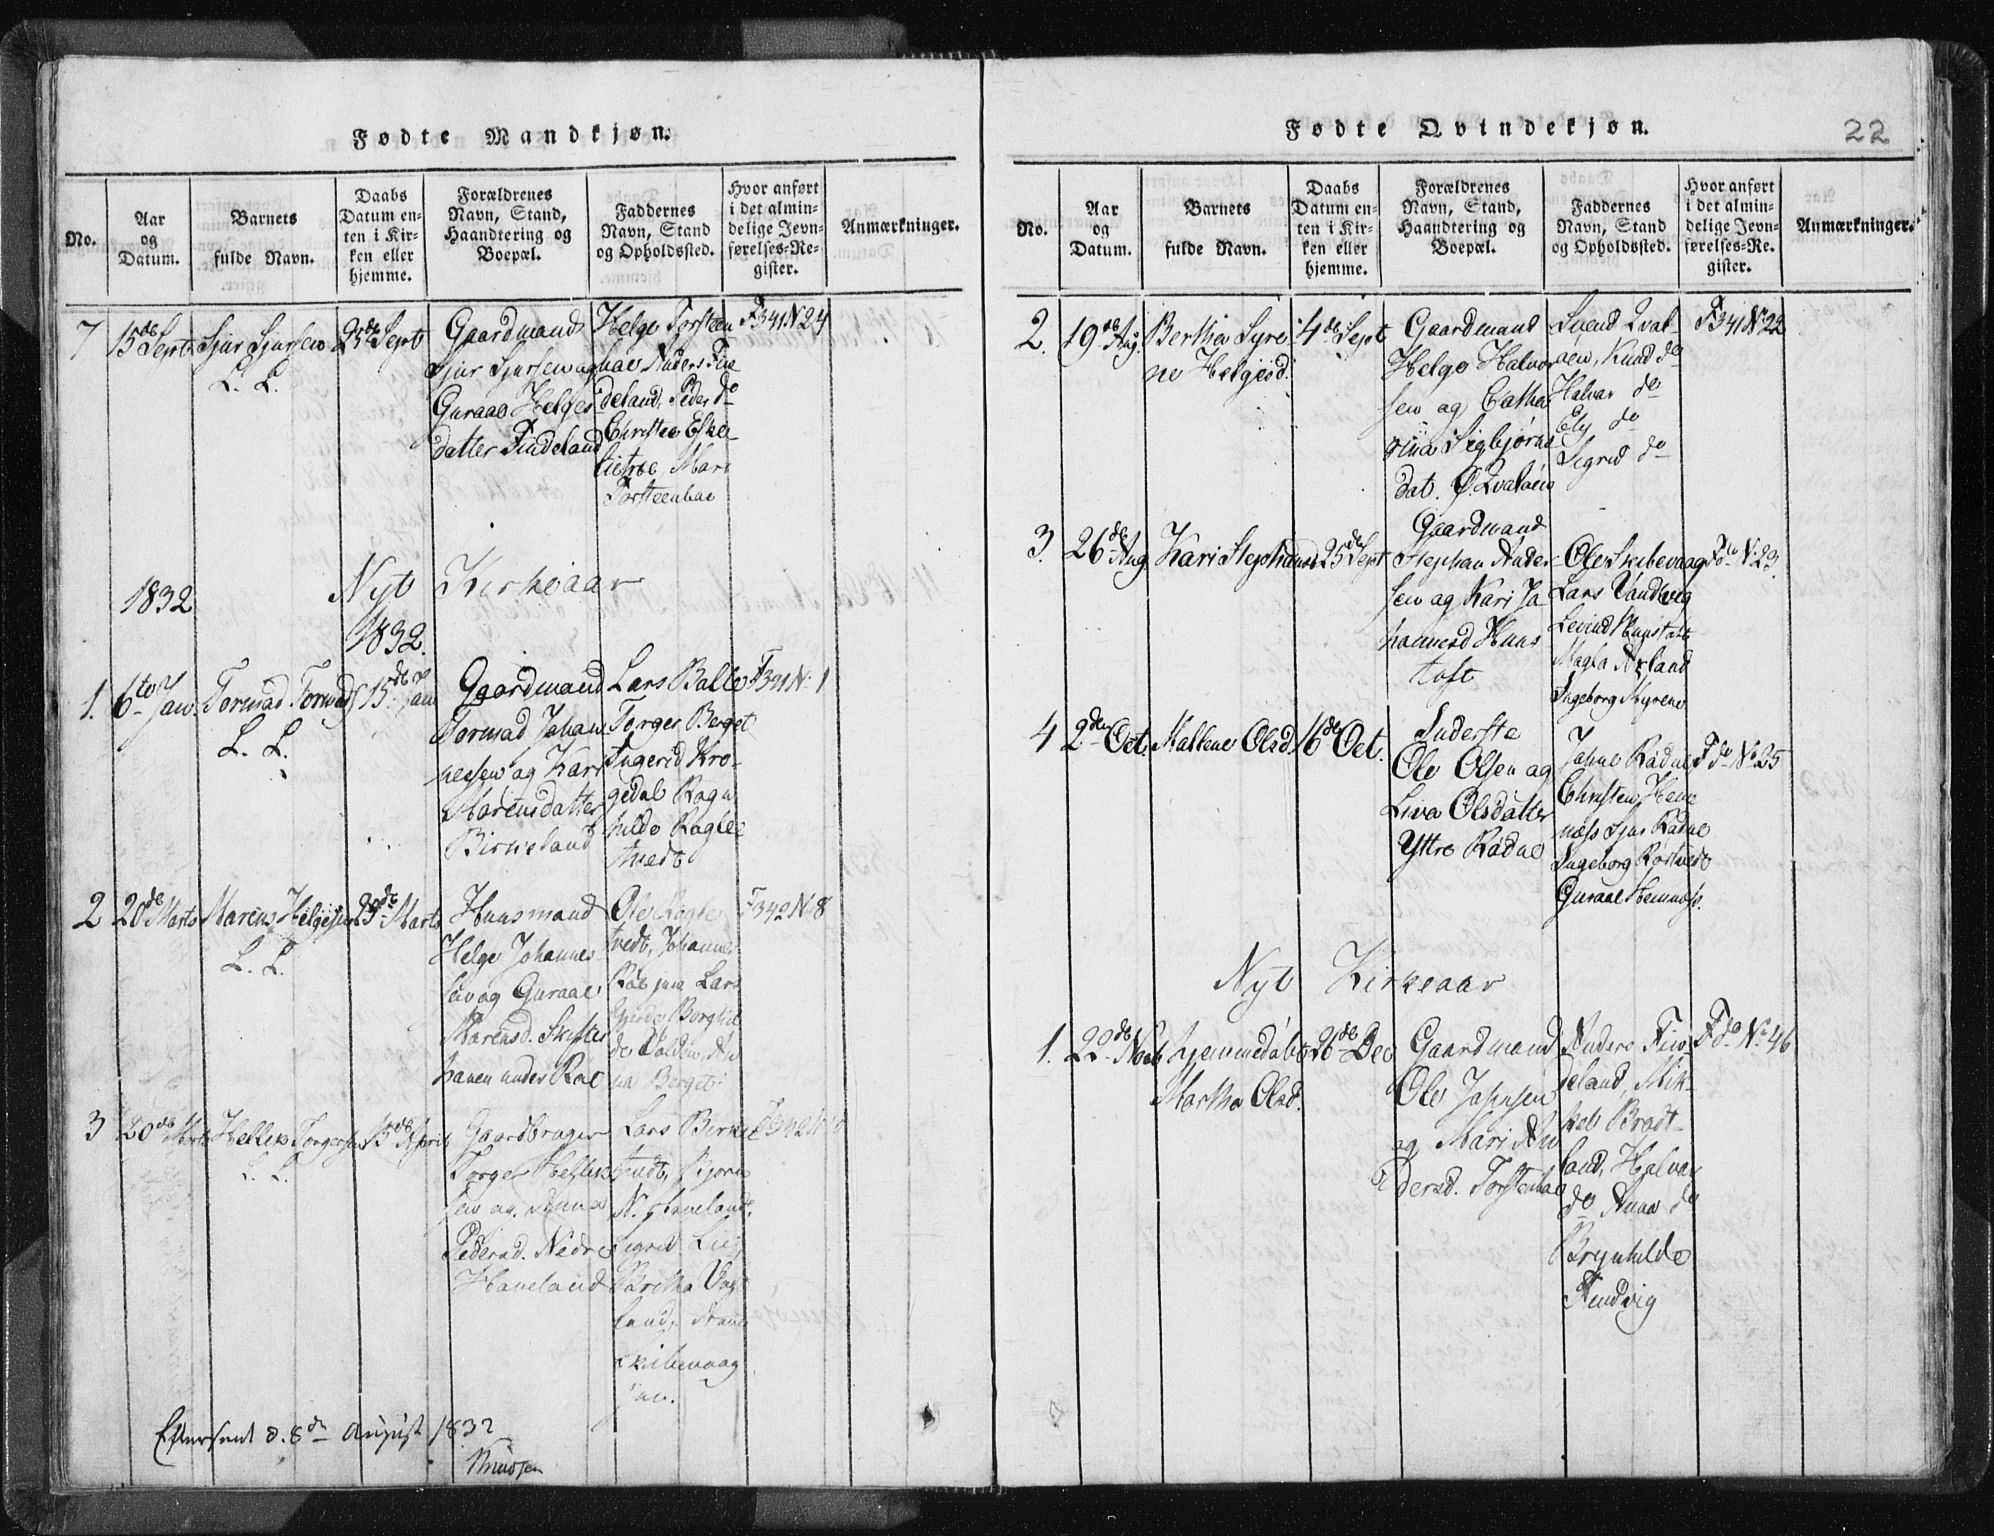 Fødte Mandkjøn.
No.
Aar
og
Datum.
Barnets
fulde Navn.
Daabs
Datum en-
ten i Kir-
ken eller
hjemme.
Forældrenes
Navn, Stand,
Haandtering og
Boepæl.
Faddernes
Navn, Stand
og Opholdssted.
Hvor anført
i det almin-
delige Jevn-
førelses-Re-
gister.
Anmærkninger.
7
15de Sept
Sjur Sjursen
L. L.
25de Sept
Gaardmand
Sjur Sjursen og
Guraae Helges
datter Findeland
Helge Torsteen
hae Anders Fin
deland, Peder do
Christen
Mari
Torsteenhae
F341 N24
1832
Nyt Kirkeaar
1832.
1.
6te Jan.
Tormad Tormods
L. L.
15de Jan
Gaardmand
Tormad Johan
nessen og Kari
Marensdatter
Birkeland
Lars Balle
Torger Berget
Ingerid Kro-
gedal Ragn
hilde Ragle
tvedt
F341 N. 1
2
20de Marts
Marens Helgesen
L. L.
25de Marts
Huusmand
Helge Johannes
sen og Guraae
Marensd. Skifter
haven under Rae
Ole Røgle
tvedt, Johannes
Røe jun Lars
Gjerde Borghil
de Dalden, An
na Berget
F342 N. 8
3
20de Marts
Hellik Torgersen
L. L.
15de April
Gaardbruger
Torger Hellik
sen og Anna
Pedersd. Nedre
Haveland
Lars Birke
tvedt, Bjørn
N. Haveland,
Sigrid Lie,
Britha Vaag
land,
Skibevaag
jun.
F342 N
Efterseet d. 8de August 1832
Knudsen
Fødte Qvindekjøn.
22
No.
Aar
og
Datum.
Barnets
fulde Navn.
Daabs
Datum en-
ten i Kir-
ken eller
hjemme.
Forældrenes
Navn, Stand,
Haandtering og
Boepæl.
Faddernes
Navn, Stand
og Opholdssted.
Hvor anført
i det almin-
delige Jevn-
førelses-Re-
gister.
Anmærkninger.
2.
19de Aug.
Berthe Syre
ne Helgesd.
4de Sept
Gaardmand
Helge Halvor
sen og Catha
rina Sigbjørns
dat. Ø. Qvaløen
Svend Qval
øen, Knud do
Halvar do
Ely do
Sigrid do
F341 N. 22
3.
26de Aug
Kari Stephansd
25de Sept
Gaardmand
Stephan Ander
sen og Kari Jo
hannesd Huus
toft
Ole Skibevaag
Lars Vandvig
Levind Huustoft
Magla Axland
Ingeborg Myrene
F do N. 23.
4
2den Oct.
Mallene Olsd.
16de Oct.
Inderste
Ole Olsen og
Liva Olsdatter
Yttre Rødne
Johne Rødne
Christen Heve
næss Sjur Rødne
Ingeborg Røstvedt
Guraae Hevenæss.
F do N. 25
Nyt Kirkeaar
1.
22de Novb
hjemmedøbt
Martha Olsd.
26de Dec
Gaardmand
Ole Johnsen
og Mari An
dersd. Torstenhae
Anders Fin
deland, Mik-
kel Bradt-
land, Halvar
do Anna do
Brynhilde
Andvig
F do N. 46